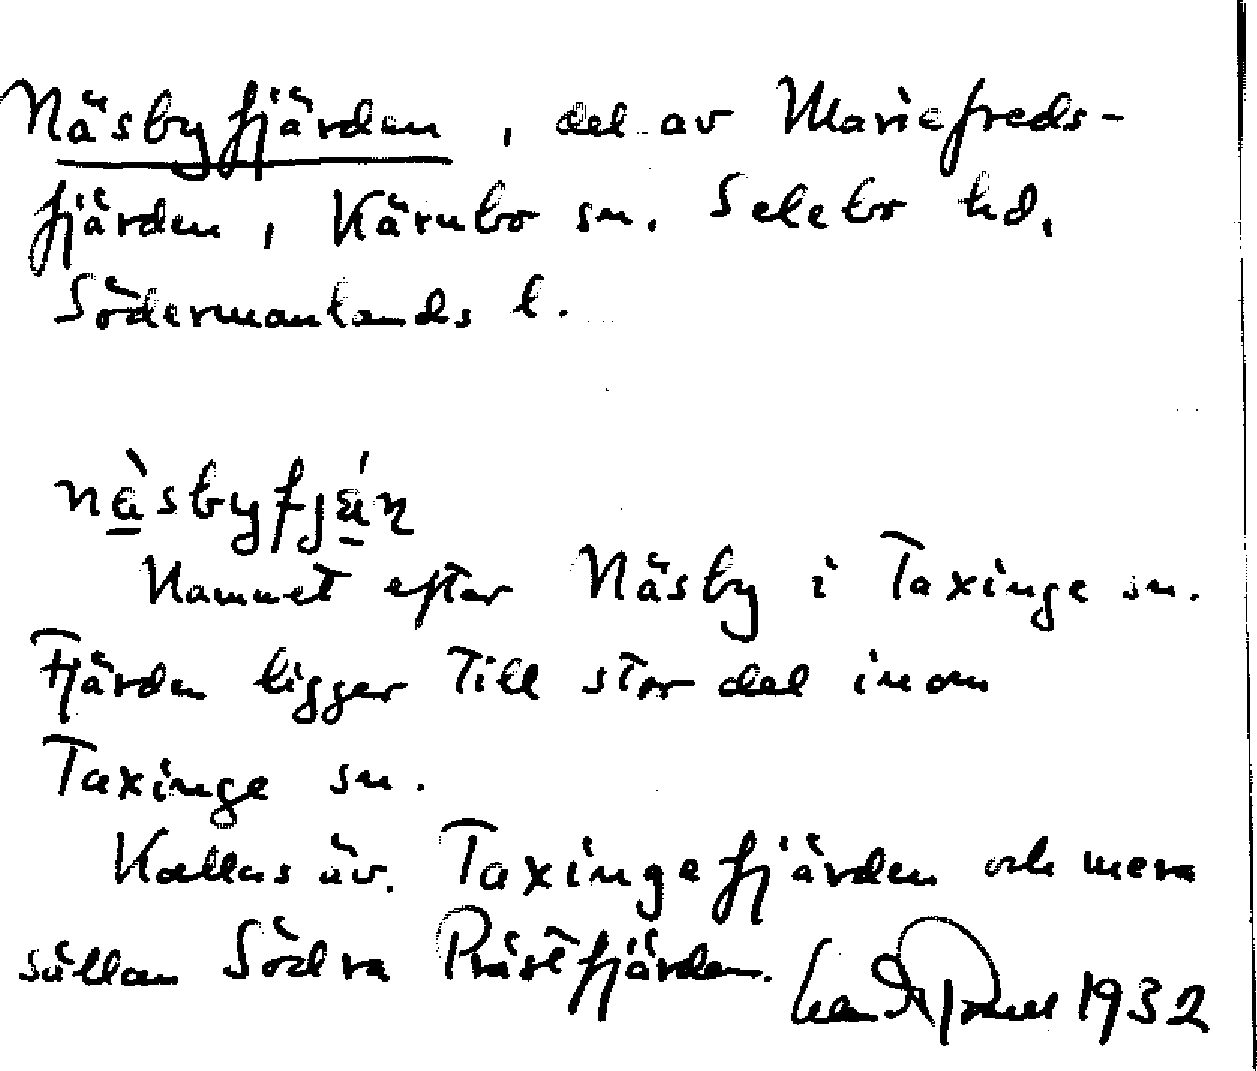 Näsbyfjärden, del av Mariefreds-
fjärden, Kärnbo sn. Selebo hd.
Södermanlands l.
nä̀sbyfjä́ṇ
Namnet efter Näsby i Taxinge sn.
Fjärden ligger till stor del inom
Taxinge sn.
Kallas äv. Taxingefjärden och mera
sällan Södra Prästfjärden.
1932